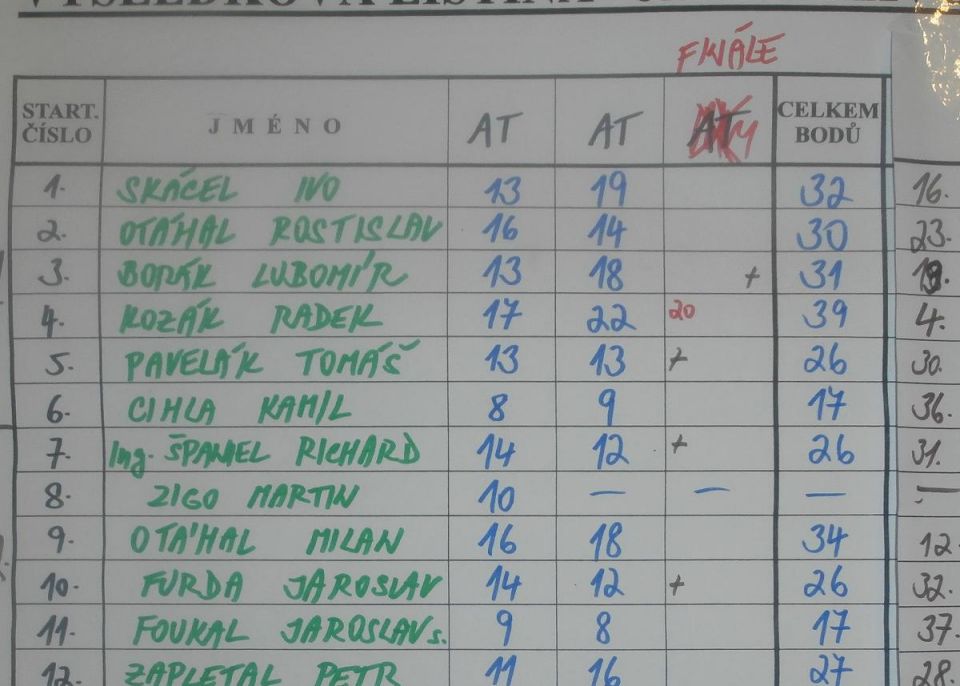 FINÁLE
START. ČÍSLO JMÉNO AT AT AT CELKEM BODŮ
1. SKÁCEL IVO 13 19 32 16.
2. OTÁHAL ROSTISLAV 16 14 30 23.
3. BORÁK LUBOMÍR 13 18 + 31
4. KOZÁK RADEK 17 22 20 39 4.
5. PAVELÁK TOMÁŠ 13 13 + 26 30.
6. CIHLA KAMIL 8 9 17 36.
7. Ing. ŠPANIEL RICHARD 14 12 + 26 31.
8. ZIGO MARTIN 10 — — — —
9. OTÁHAL MILAN 16 18 34 12.
10. FURDA JAROSLAV 14 12 + 26 32.
11. FOUKAL JAROSLAV s. 9 8 17 37.
12. ZAPLETAL PETR 11 16 27 28.